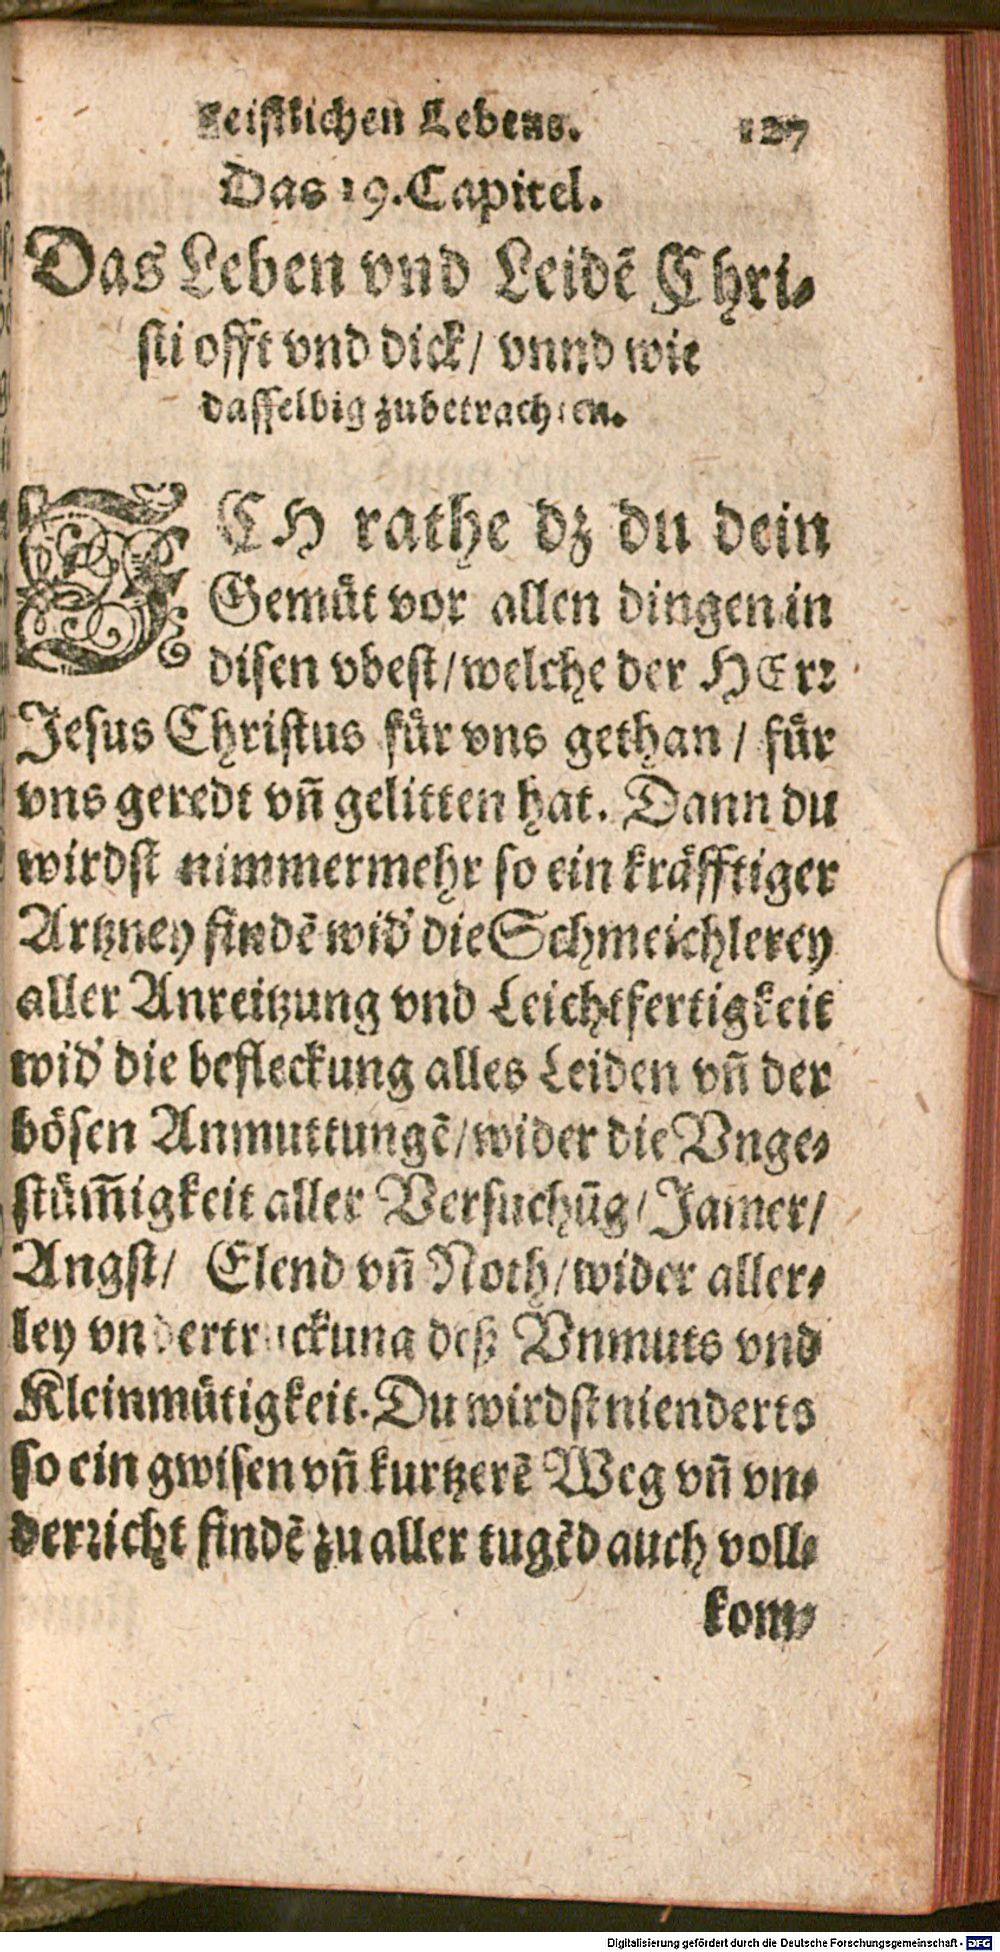 Geistlichen Lebens. 127
Das 19. Capitel.
Das Leben vnd Leidẽ Chri-
sti offt vnd dick/ vnnd wie
dasselbig zubetrachten.
ICH rathe dz du dein
Gemüt vor allen dingen in
disen vbest/welche der HErr
Jesus Christus für vns gethan / für
vns geredt vñ gelitten hat. Dann du
wirdst nimmermehr so ein kräfftiger
Artzney findẽ wid' die Schmeichlerey
aller Anreitzung vnd Leichtfertigkeit
wid' die befleckung alles Leiden vñ der
bösen Anmuttungẽ/wider die Vnge-
stüm̃igkeit aller Versuchũg/Jamer/
Angst/ Elend vñ Noth/wider aller-
ley vndertruckung deß Vnmuts vnd
Kleinmütigkeit. Du wirdst nienderts
so ein gwisen vñ kurtzerẽ Weg vñ vn-
derricht findẽ zu aller tugẽd auch voll-
kom-
Digitalisierung gefördert durch die Deutsche Forschungsgemeinschaft - DFG